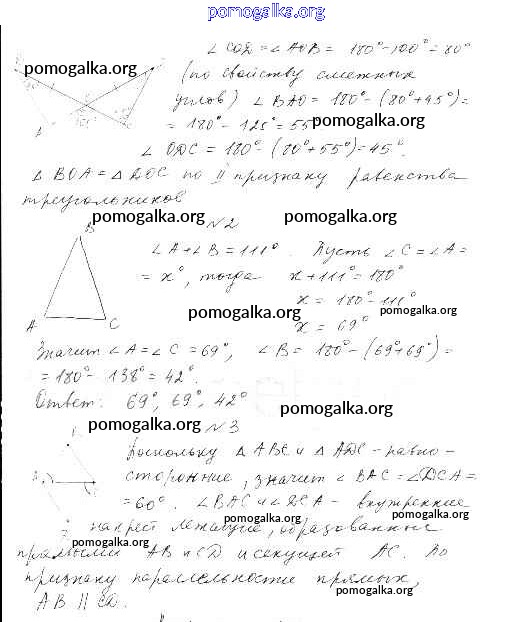 pomogalka.org
∠COD = ∠AOB = 180° - 100° = 80°
pomogalka.org
(по свойству смежных
углов) ∠BAO = 180° - (80° + 45°) =
= 180° - 125° = 55° pomogalka.org
∠ODC = 180° - (80° + 55°) = 45°.
△BOA = △DOC по II признаку равенства
треугольников
pomogalka.org №2 pomogalka.org
B
∠A + ∠B = 111°. Пусть ∠C = ∠A =
= x°, тогда x + 111° = 180°
x = 180° - 111°
pomogalka.org pomogalka.org
x = 69°
A C
Значит ∠A = ∠C = 69°, ∠B = 180° - (69° + 69°) =
= 180° - 138° = 42°.
Ответ: 69°, 69°, 42°
pomogalka.org
pomogalka.org №3
Поскольку △ABC и △ADC - равно-
сторонние, значит ∠BAC = ∠DCA =
= 60°. ∠BAC и ∠DCA - внутренние
pomogalka.org pomogalka.org
накрест лежащие, образованные
pomogalka.org
прямыми AB и CD и секущей AC. По
признаку параллельности прямых,
pomogalka.org
AB || CD.